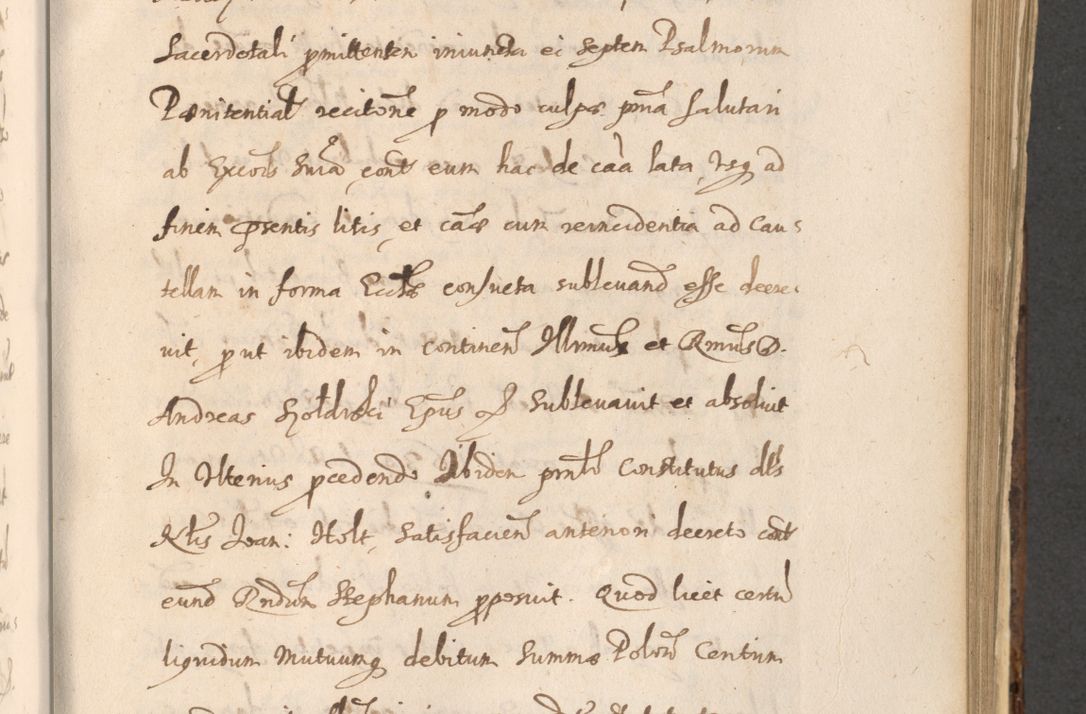 Sacerdotali pmittentem iniuncta ei Septem Psalmorum
Pœnitential recitone p modo culpæ pma Salutari
ab Excois Snia cont eum hac de caa lata usq ad
finem psentis litis et caæ cum reincidentia ad Cau
tellam in forma Ecclæ consueta sublevand esse decre
vit, prout ibidem in continen Illrmus et Rmus D.
Andreas Szołdrski Epus P Sublevavit et absolvit
In Ulterius pcedendo Ibidem pntr Constitutus dls
Nlis Joan: Holt, Satisfacien anteriori decreto cont
eund Rndum Stephanum pposuit. Quod licet certu
liquidum Mutuumq debitum Summæ Polon Centum